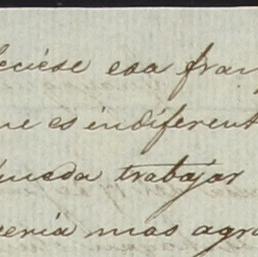 eciese esa fran
ue es indiferent
ueda trabajar
seria mas agra